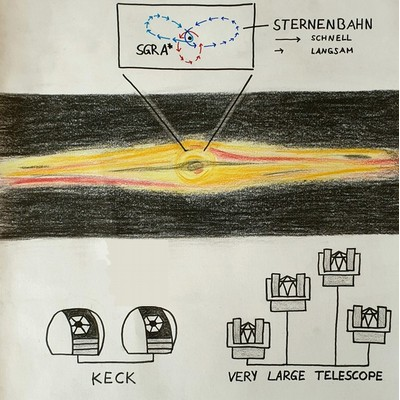 STERNENBAHN
SCHNELL
SGRA*
LANGSAM
KECK
VERY LARGE TELESCOPE